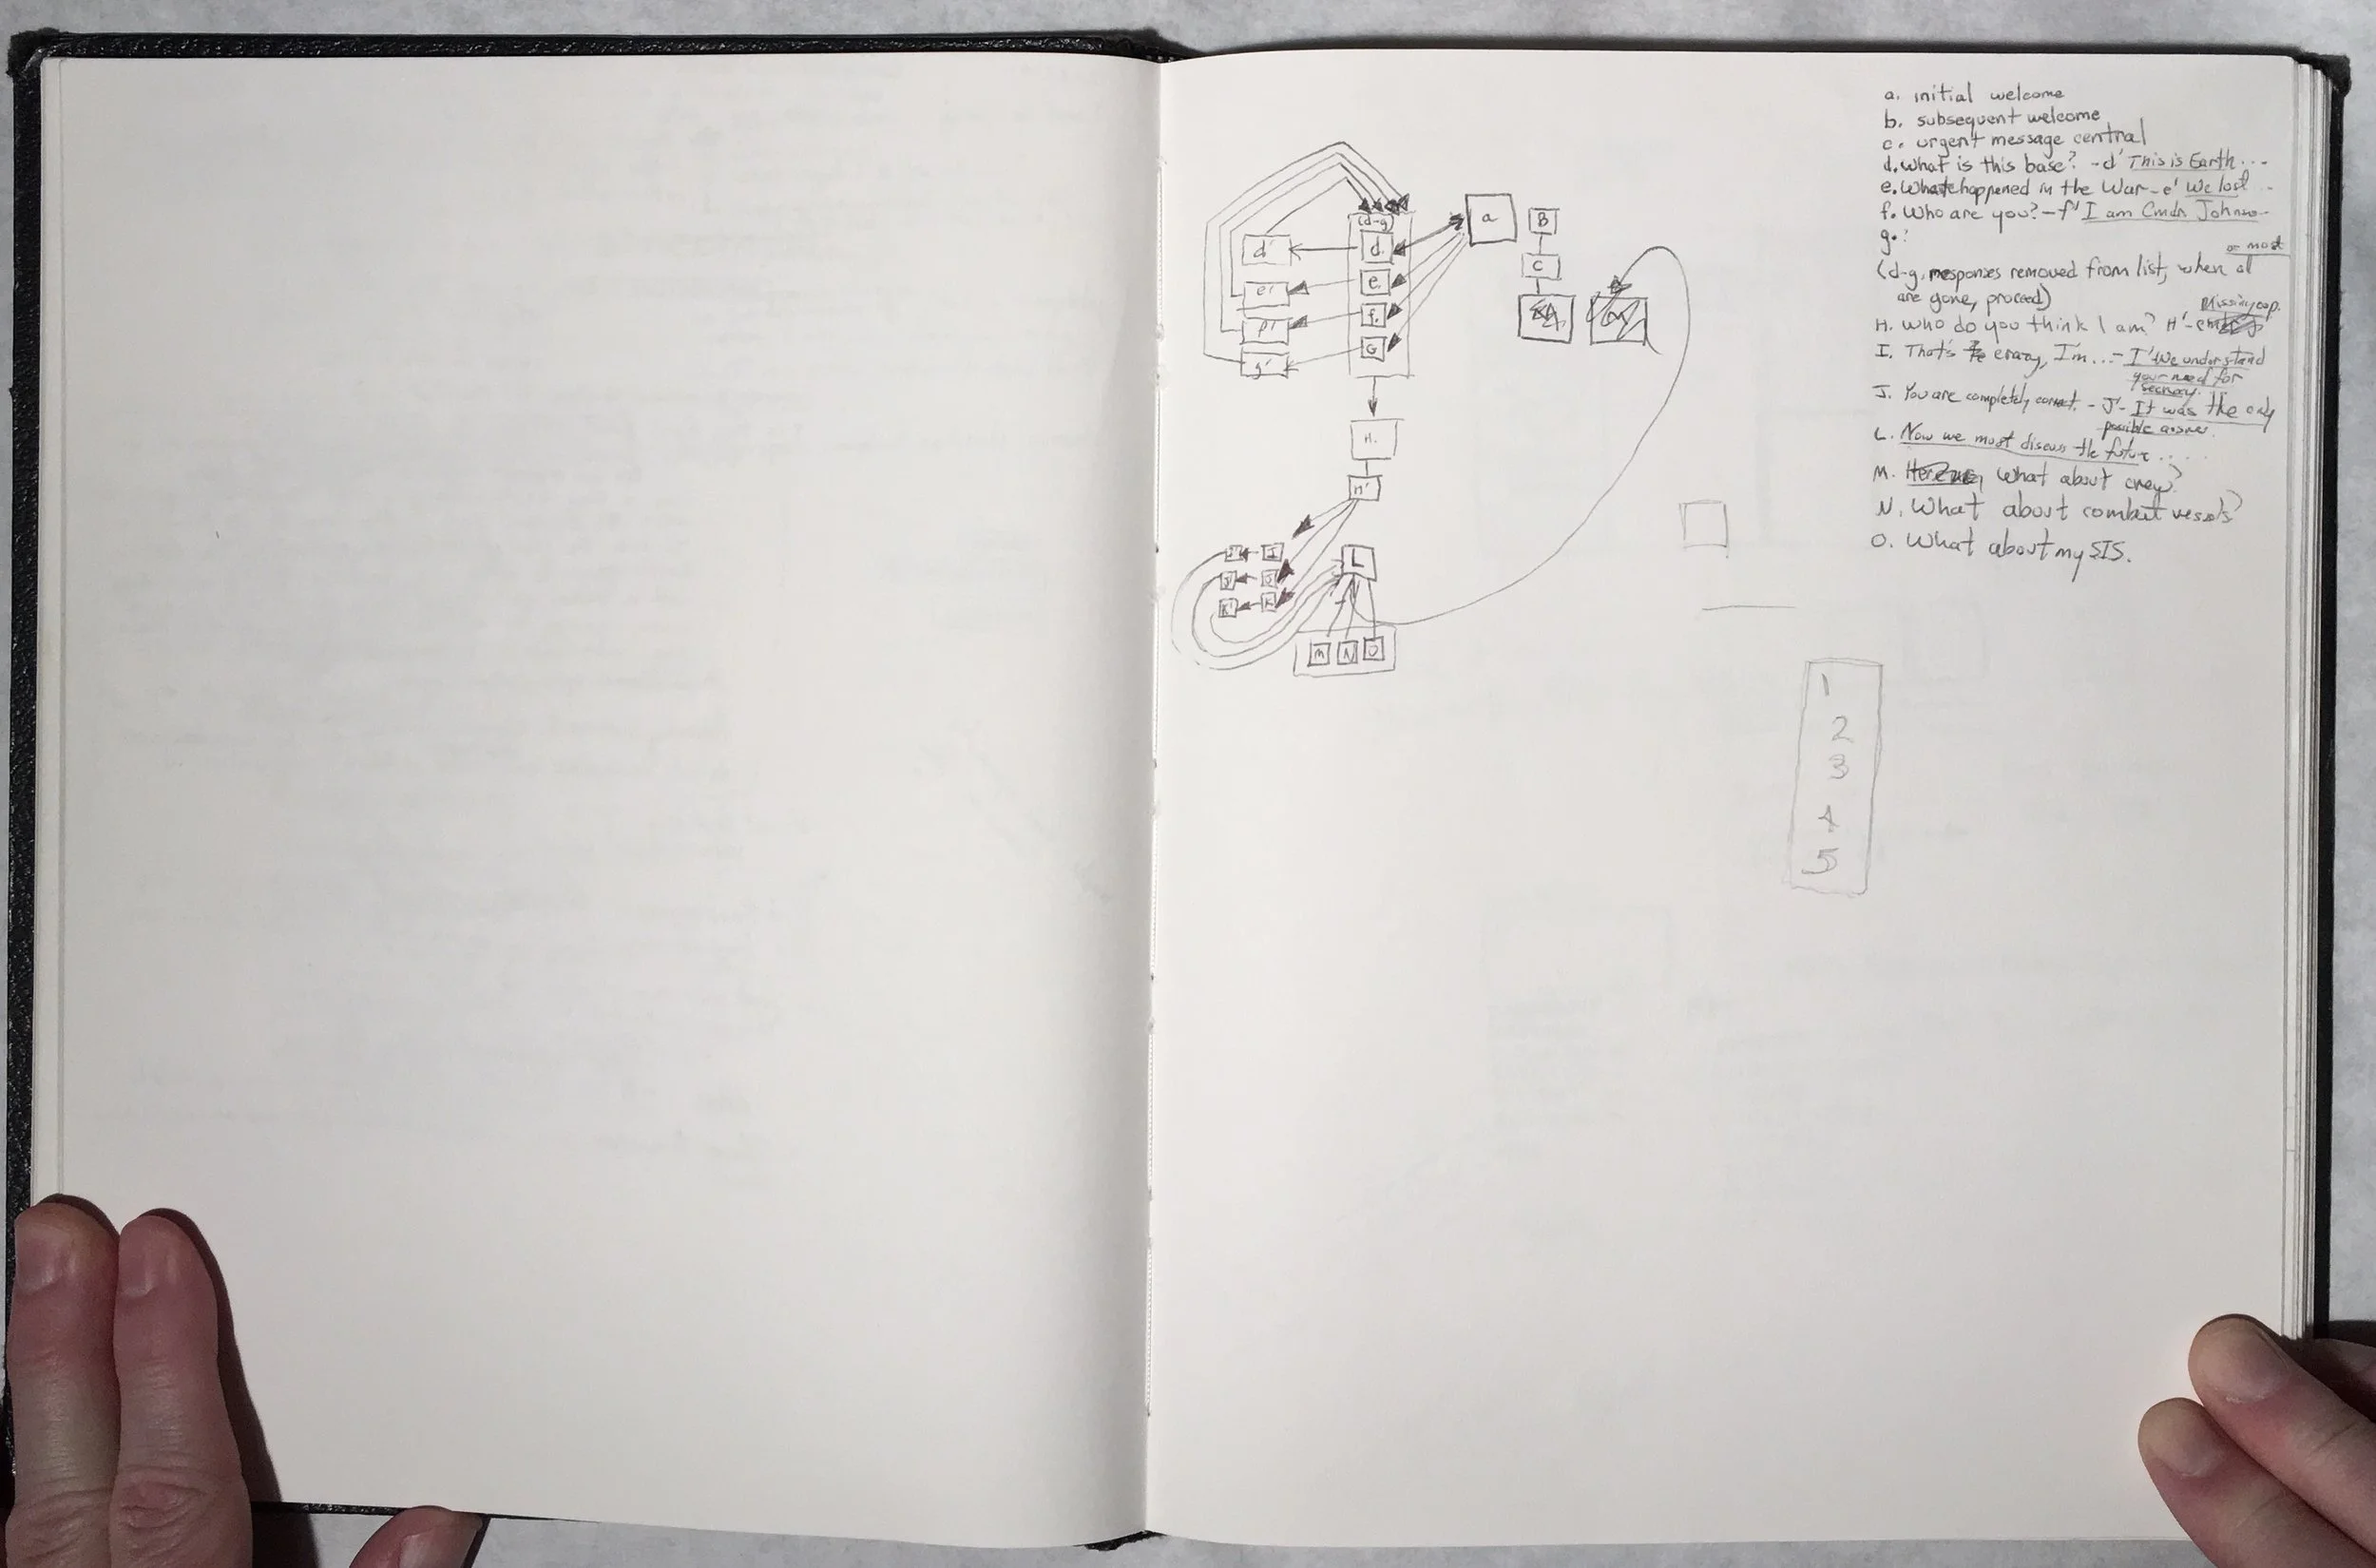 (d-g)
a
B
d'
d.
C
e'
e.
f'
f.
g'
G
H.
H'
I
J' J
K' K
L
M N O
1
2
3
4
5
a. initial welcome
b. subsequent welcome
c. urgent message central
d. What is this base? - d' This is Earth...
e. What happened in the War - e' We lost - -
f. Who are you? - f' I am Cmdr Johnso-
g. ?
or most
(d-g, responses removed from list, when al
are gone, proceed)
Missing cap.
H. Who do you think I am? H' -
I. That's crazy, I'm... - I' We understand
your need for
secrecy.
J. You are completely correct. - J' - It was the only
possible answer.
L. Now we must discuss the future....
M. What about crew?
N. What about combat vessels?
O. What about my SIS.